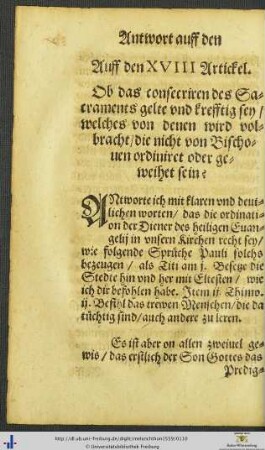 Antwort auff den
Auff den XVIII Artickel.
Ob das consecriren des Sa-
craments gelte vnd krefftig sey /
welches von denen wird vol-
bracht / die nicht von Bischo-
uen ordiniret oder ge-
weihet sein?
ANtworte ich mit klaren vnd deut-
lichen worten / das die ordinati-
on der Diener des heiligen Euan-
gelij in vnsern Kirchen recht sey /
wie folgende Sprüche Pauli solchs
bezeugen / als Titi am j. Besetze die
Stedte hin vnd her mit Eltesten / wie
ich dir befohlen habe. Item ij. Thimo.
ij. Befihl das trewen Menschen / die da
tüchtig sind / auch andere zu leren.
Es ist aber on allen zweiuel ge-
wis / das erstlich der Son Gottes das
Predig-
Universitätsbibliothek Freiburg